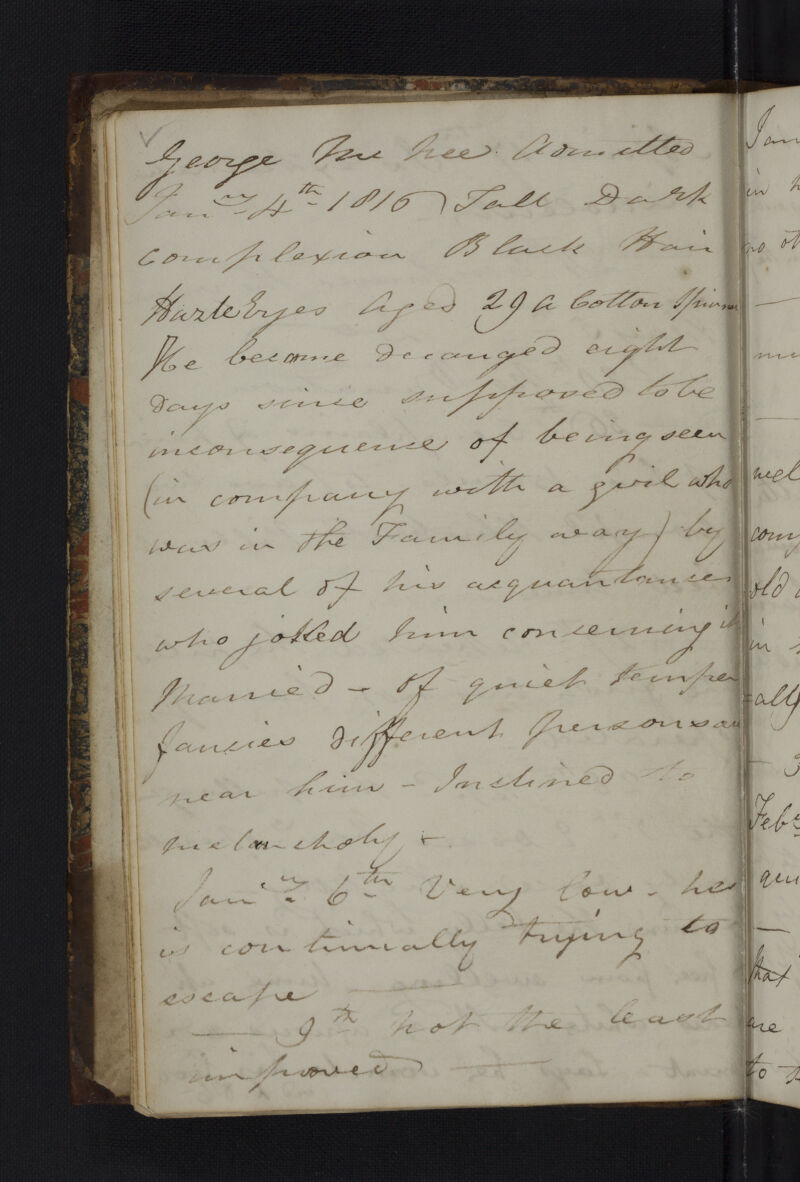 George Mc Nee. Admitted
Janry 4th 1816 Tall Dark
complexion Black Hair
Hazle Eyes Aged 29 a Cotton Spinner
He became deranged eight
days since supposed to be
inconsequence of being seen
(in company with a girl who
was in the Family way) by
several of his acquantances
who joked him concerning it
Married - of quiet temper
fancies different persons are
near him - Inclined to
melancholy -
Janry 6th Very low - he
is continually trying to
escape —
— 9th not the least
improved —
Jan
in
no ot
—
—
wel
com
old
in
ally
- 3
Feb
—
that
are
to